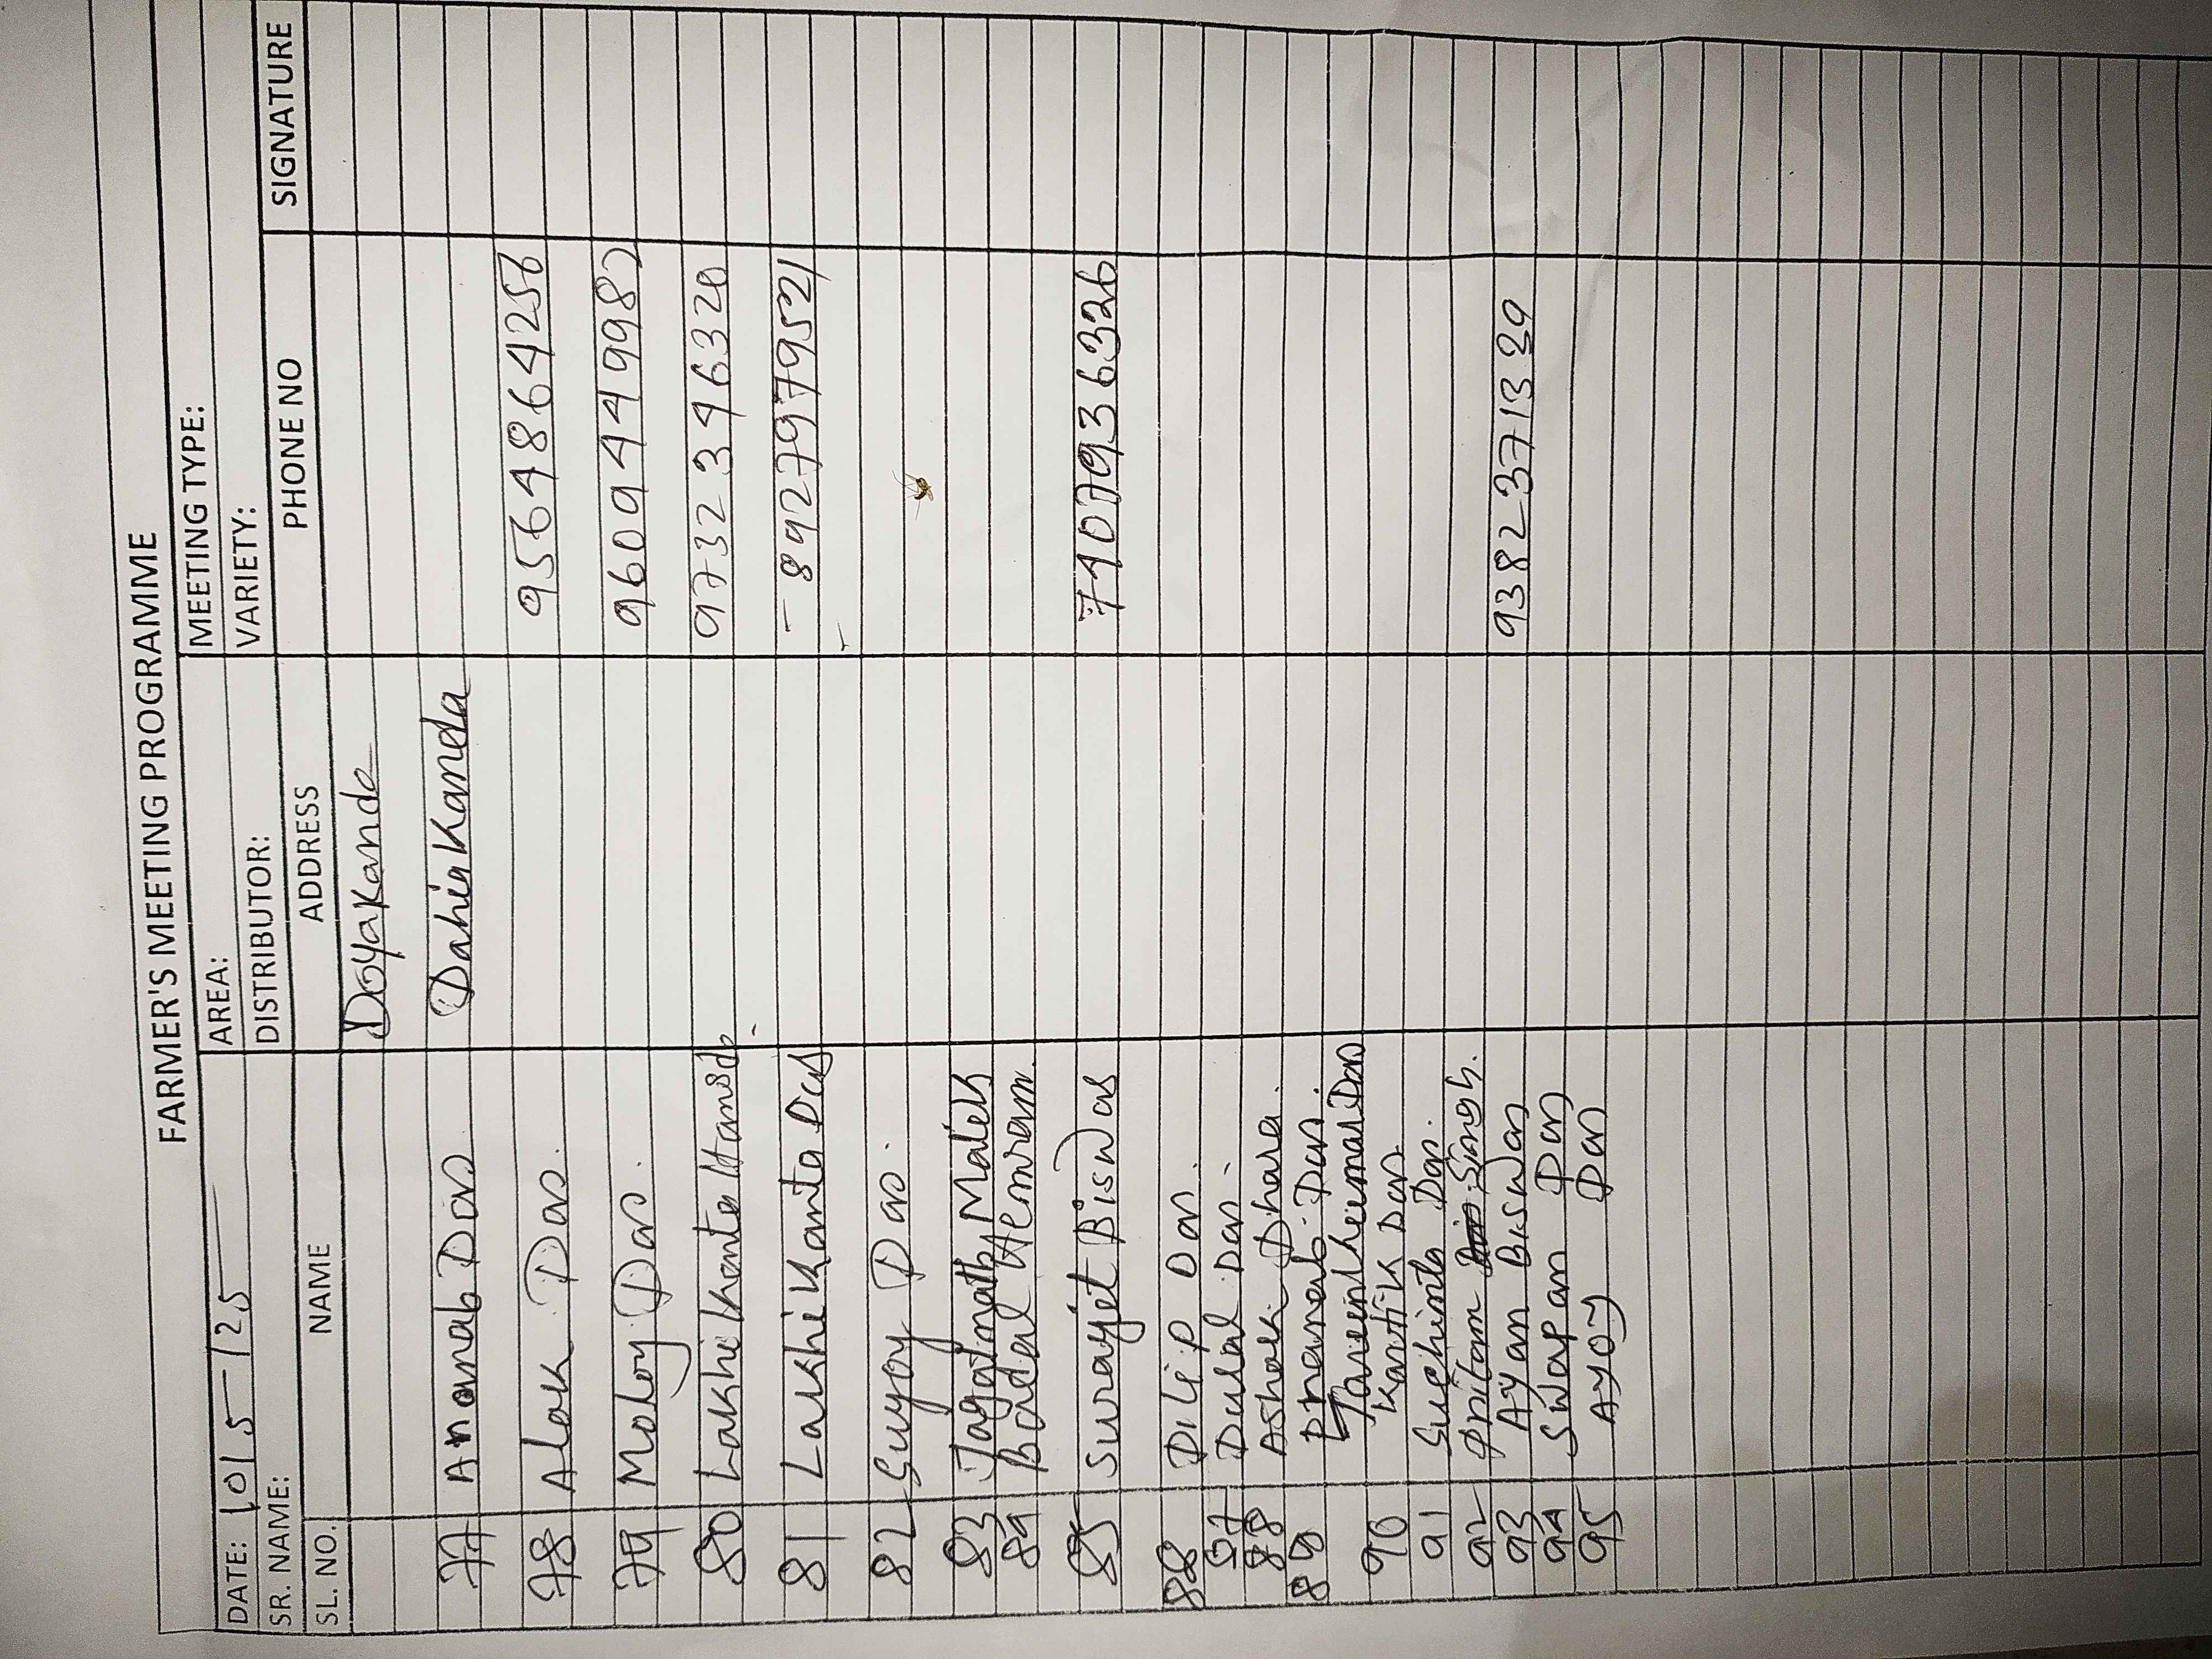 FARMER'S MEETING PROGRAMME
DATE: 10/5/25 AREA: MEETING TYPE:
SR. NAME: DISTRIBUTOR: VARIETY:
SL. NO. NAME ADDRESS PHONE NO SIGNATURE
Doyakanda
77 Ananab Das Dahigkanda
78 Alok Das 9564864256
79 Moloy Das 9609449982
80 Lakhikanta Hansda 9732346320
81 Lakhikanta Das 8927979521
82 Sujoy Das
83 Jagatnath Malek
84 Badal Hemram
85 Surajet Biswas 7407936326
88 Dilip Das
87 Dulal Das
88 Ashok Dhara
89 Pranab Das
Kumar Das
90 Kartik Das
91 Das
92 Pritam Singh
93 Ayan Biswas 9382371339
94 Swapan Das
95 Ayoj Das